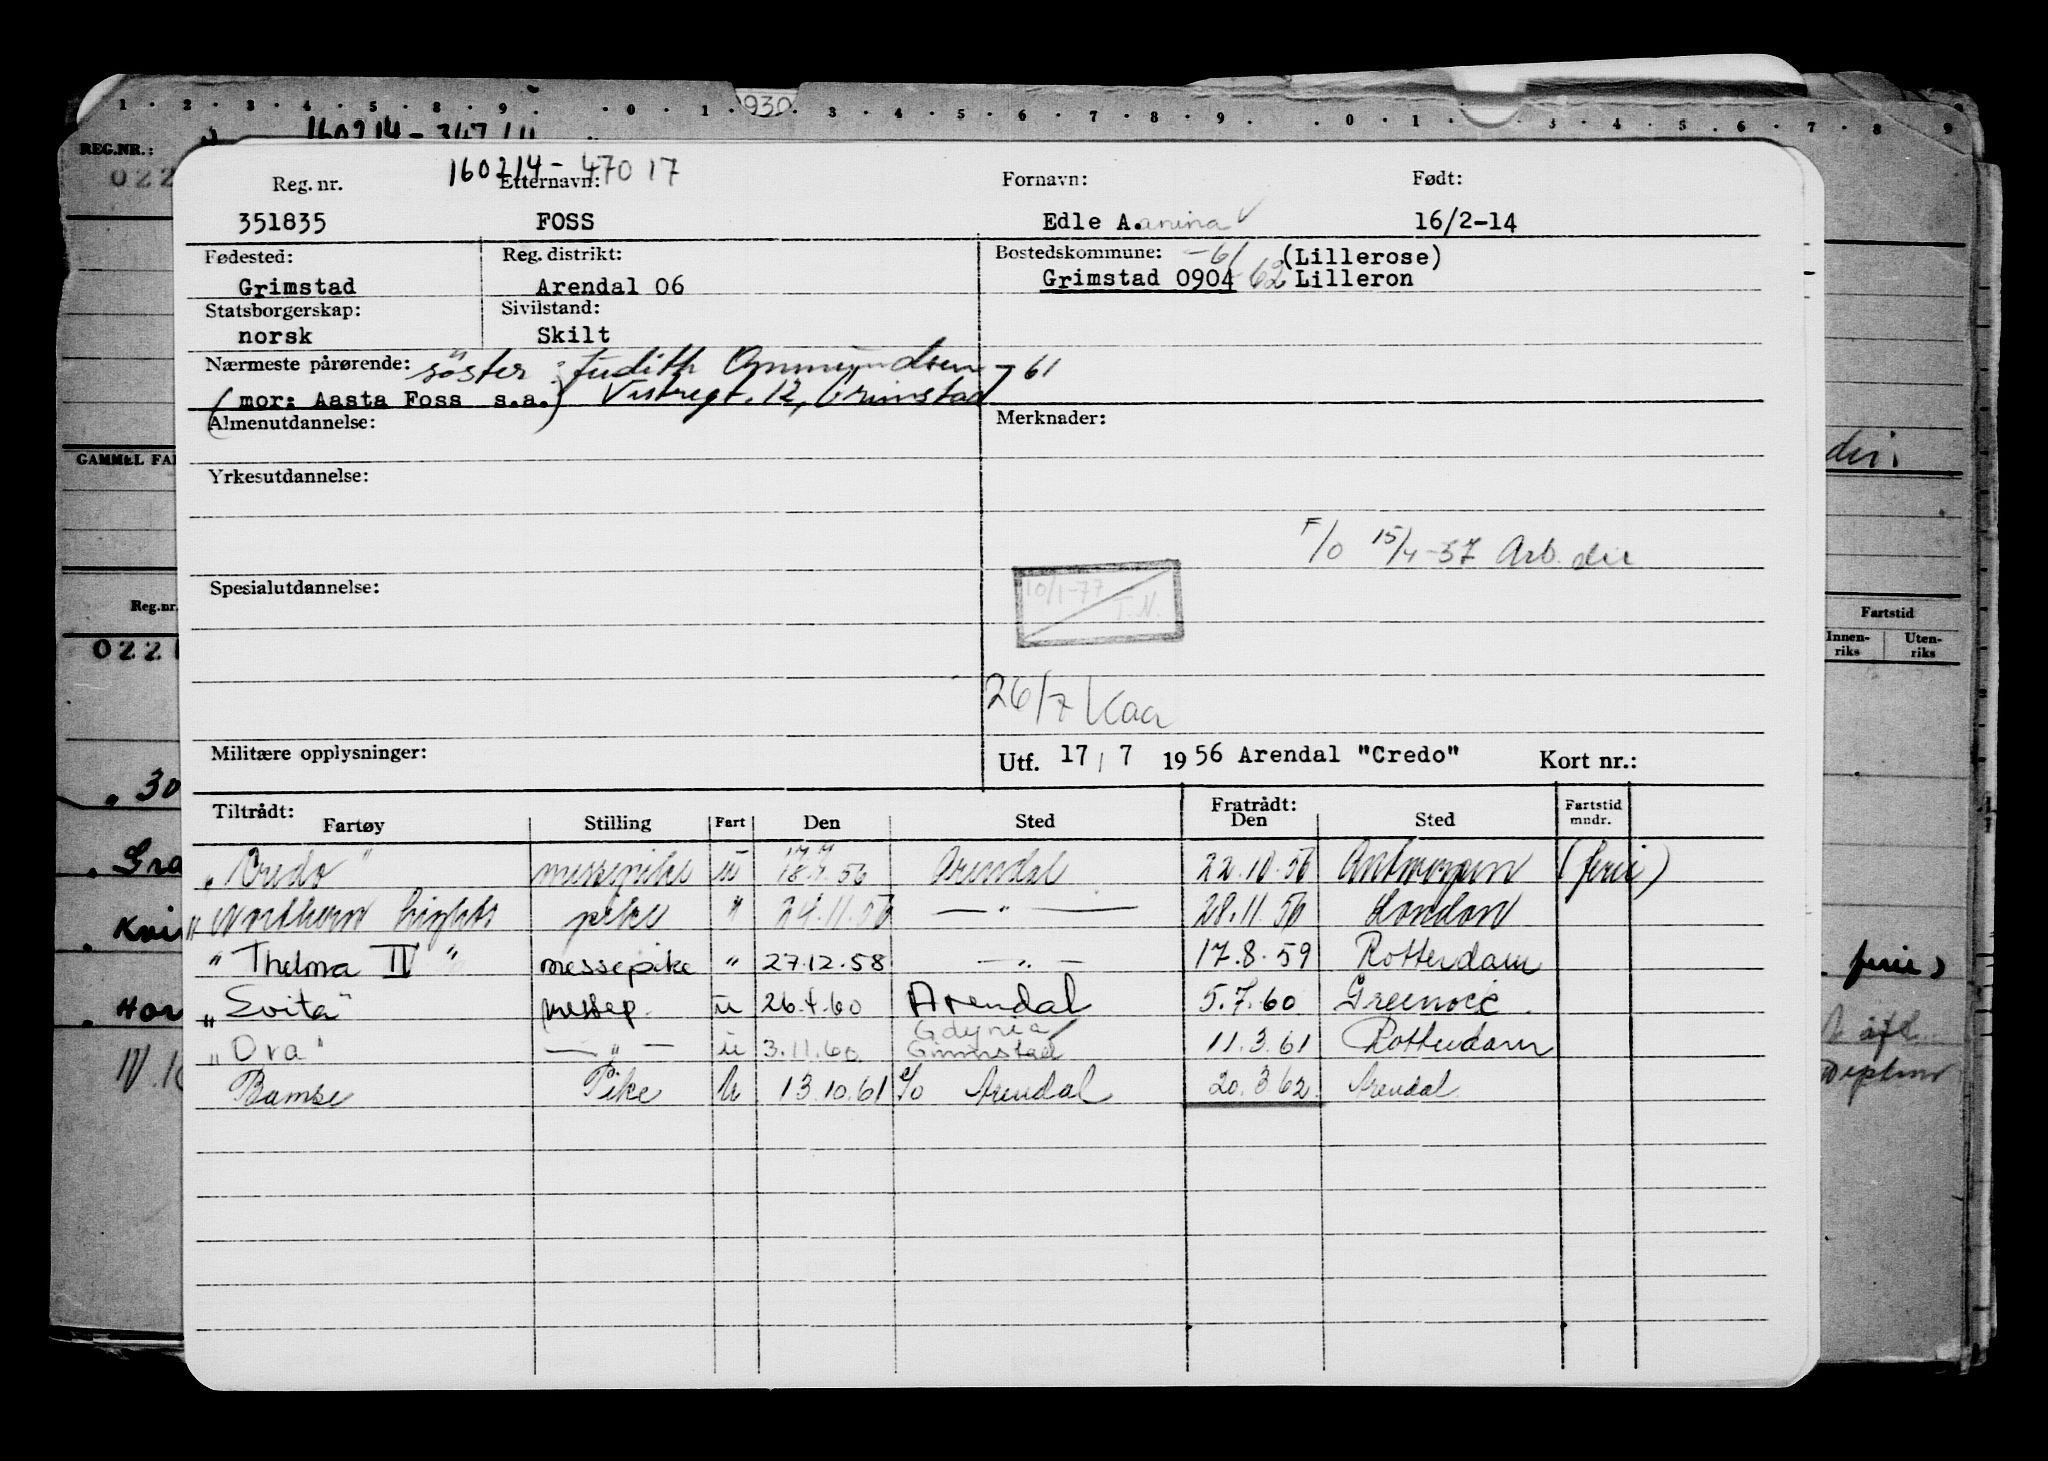 1 . 2 . 3 . 4 . 5 . 8 . 9 . . 0 . 1 . 930 . 3 . 4 . 5 . 6 . 7 . 8 . 9 . . 0 . 1 . 3 . 4 . 5 . 6 . 7 . 8 9
REG.NR.: 160214-347
022
160214-47017
Reg. nr. Etternavn: Fornavn: Født:
351835 FOSS Edle A.anina 16/2-14
Fødested: Reg. distrikt: Bostedskommune: -61 (Lillerose)
Grimstad Arendal 06 Grimstad 0904 -62 Lilleron
Statsborgerskap: Sivilstand:
norsk Skilt
Nærmeste pårørende: söster: Judith Ommundsen -61
(mor: Aasta Foss s.a.) Vestregt. 12, Grimstad
Almenutdannelse: Merknader:
GAMMEL FA
Yrkesutdannelse:
F/O 15/4-57 Arb. dir
Spesialutdannelse: 10/1-77 T.N.
Reg.nr. Fartstid
022 Innen-riks Uten-riks
26/7 Kaa
Militære opplysninger: Utf. 17/7 1956 Arendal "Credo" Kort nr.:
Tiltrådt: Fratrådt: Fartstid mndr.
Fartøy Stilling Fart Den Sted Den Sted
"Credo" messepike u 17.7 18.7.56 Arendal 22.10.56 Antwerpen (ferie)
"Northern Lights pike " 24.11.56 — " — 28.11.56 London
"Thelma IV" messepike " 27.12.58 — " — 17.8.59 Rotterdam
"Evita" messep. u 26.4.60 Arendal 5.7.60 Greenock
"Ora" — " — u 3.11.60 Gdynia / Grimstad 11.3.61 Rotterdam
Bamse Pike u 13.10.61 c/o Arendal 20.3.62 Arendal
. 30
ferie)